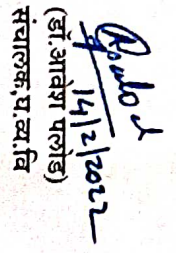 14/2/2022
(डॉ.आवेश पलोड)
संचालक,प.व्य.वि